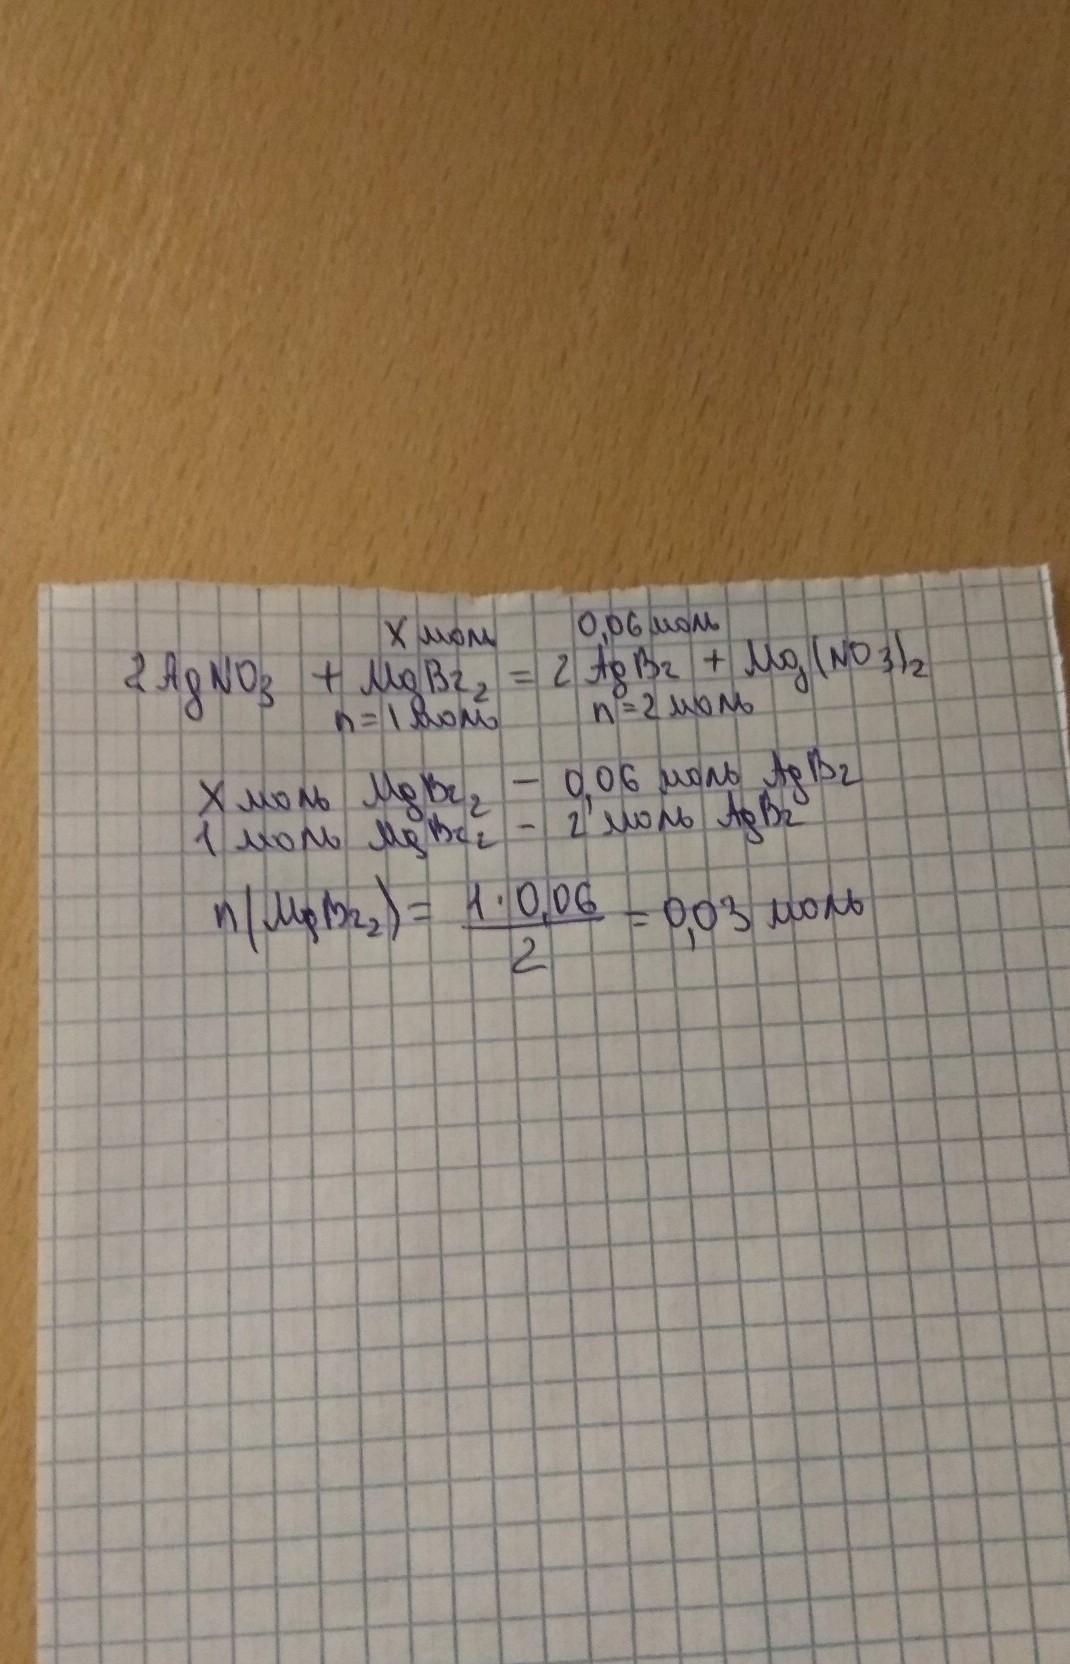 X моль 0,06 моль
2 AgNO3 + MgBr2 = 2 AgBr + Mg(NO3)2
n = 1 моль n = 2 моль
X моль MgBr2 - 0,06 моль AgBr
1 моль MgBr2 - 2 моль AgBr
n(MgBr2) = 1 · 0,06 / 2 = 0,03 моль